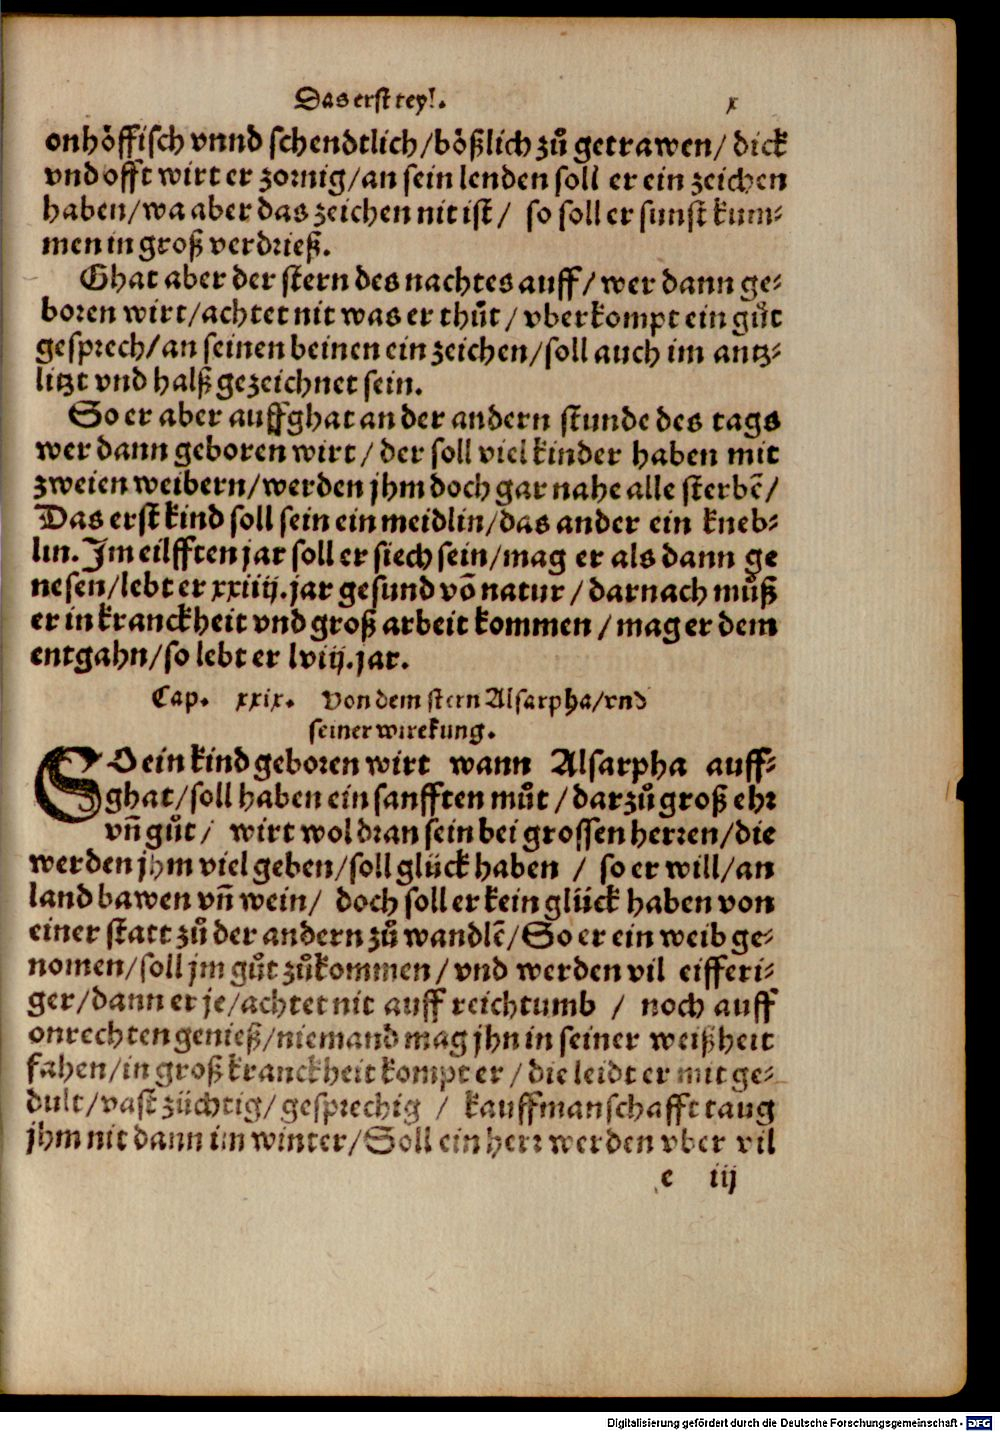 Das erst teyl. x
onhöffisch vnnd schendtlich/bößlich zů getrawen/ dick
vnd offt wirt er zornig/an sein lenden soll er ein zeichen
haben/wa aber das zeichen nit ist/ so soll er sunst kum⸗
men in groß verdrieß.
Ghat aber der stern des nachtes auff/wer dann ge⸗
boren wirt/achtet nit was er thůt/vberkompt ein gůt
gesprech/an seinen beinen ein zeichen/soll auch im antz⸗
litzt vnd halß gezeichnet sein.
So er aber auffghat an der andern stunde des tags
wer dann geboren wirt/der soll viel kinder haben mit
zweien weibern/werden jhm doch gar nahe alle sterbē/
Das erst kind soll sein ein meidlin/das ander ein kneb⸗
lin. Im eilfften jar soll er siech sein/mag er als dann ge
nesen/lebt er xxiiij.jar gesund vō natur/darnach můß
er in kranckheit vnd groß arbeit kommen/mag er dem
entgahn/so lebt er lviij.jar.
Cap. xxix. Von dem stern Alsarpha/vnd
seiner wirckung.
SO ein kind geboren wirt wann Alsarpha auff⸗
ghat/soll haben ein sanfften můt/darzů groß ehr
vñ gůt/ wirt wol dran sein bei grossen herren/die
werden jhm viel geben/soll glück haben / so er will/an
land bawen vñ wein/ doch soll er kein glück haben von
einer statt zů der andern zů wandlē/So er ein weib ge⸗
nomen/soll jm gůt zůkommen/vnd werden vil eifferi⸗
ger/dann er je/achtet nit auff reichtumb / noch auff
onrechten genieß/niemand mag jhn in seiner weißheit
fahen/in groß kranckheit kompt er/die leidt er mit ge⸗
dult/vast züchtig/gesprechig / kauffmanschafft taug
jhm nit dann im winter/Soll ein herr werden vber vil
e iij
Digitalisierung gefördert durch die Deutsche Forschungsgemeinschaft - DFG